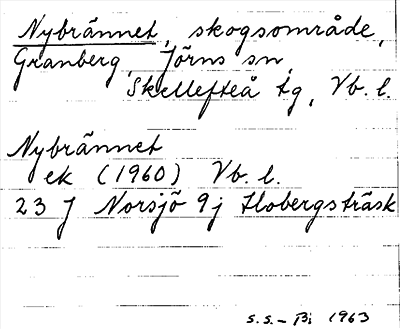 Nybrännet, skogsområde,
Granberg, Jörns sn,
Skellefteå tg, Vb. l.
Nybrännet
ek (1960) Vb. l.
23 J Norsjö 9j Flobergsträsk
S.S. - Bi 1963